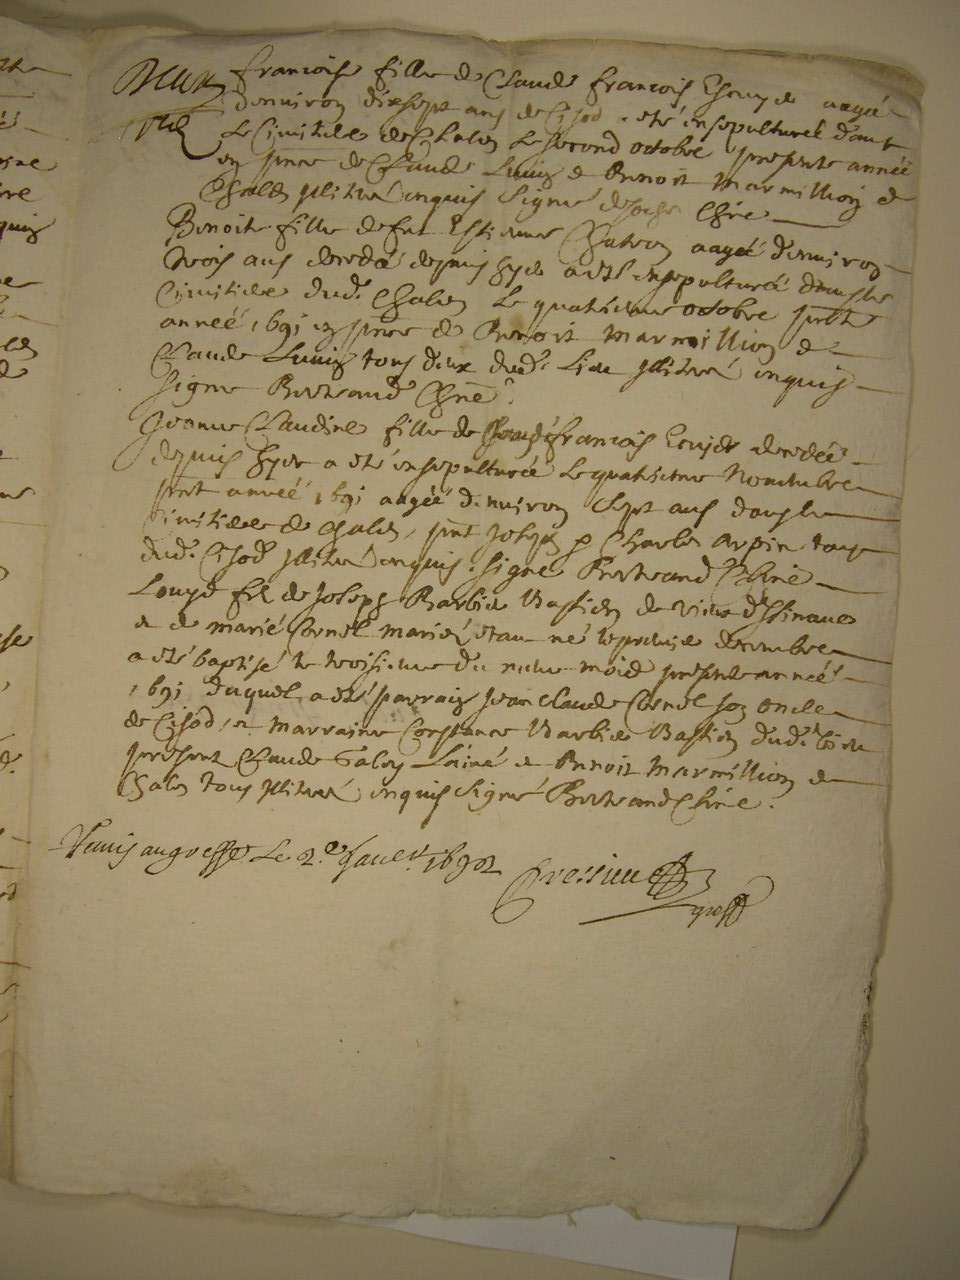 françoise fille de Claude françois Escuyer aagée
d'environ dixsept ans de Cisod a eté ensepulturée dans
Le Cimitiere de Chales Le second octobre presente année
en pnce de Claude Luuiz & Benoit Marmillion de
Chales illitteré enquis Signé
Benoite fille de feu Estienne aagée d'environ
trois ans decedée depuis hyer a esté ensepulturée dans le
Cimitiere dud. Chales Le quatrieme octobre pnte
année 1691 en pnce de Benoit Marmillion &
Claude Luuiz tous deux dud. Lieu illitteré enquis
signé Bertrand
Jeanne Claudine fille de françois Escuyer decedée
depuis hyer a eté ensepulturée Le quatrieme Novembre
pnte année 1691 aagée d'environ sept ans dans le
Cimitiere de Chales, pnt Joseph & Charles Arpin tous
dud. Cisod illitteré enquis. signé Bertrand
Louys fils de Joseph Barbier Bastien de
& de marie Cornel mariés estant né le premier decembre
a eté baptisé le troisieme du meme mois presente année
1691 duquel a eté parrain Jean Claude Cornel son oncle
de Cisod, & marraine Constance Barbier Bastien dud. lieu
present Claude Lainé & Benoit Marmillion de
Chales tous illitteré enquis signé Bertrand
au greffe Le 2.e Janer. 1692
greff